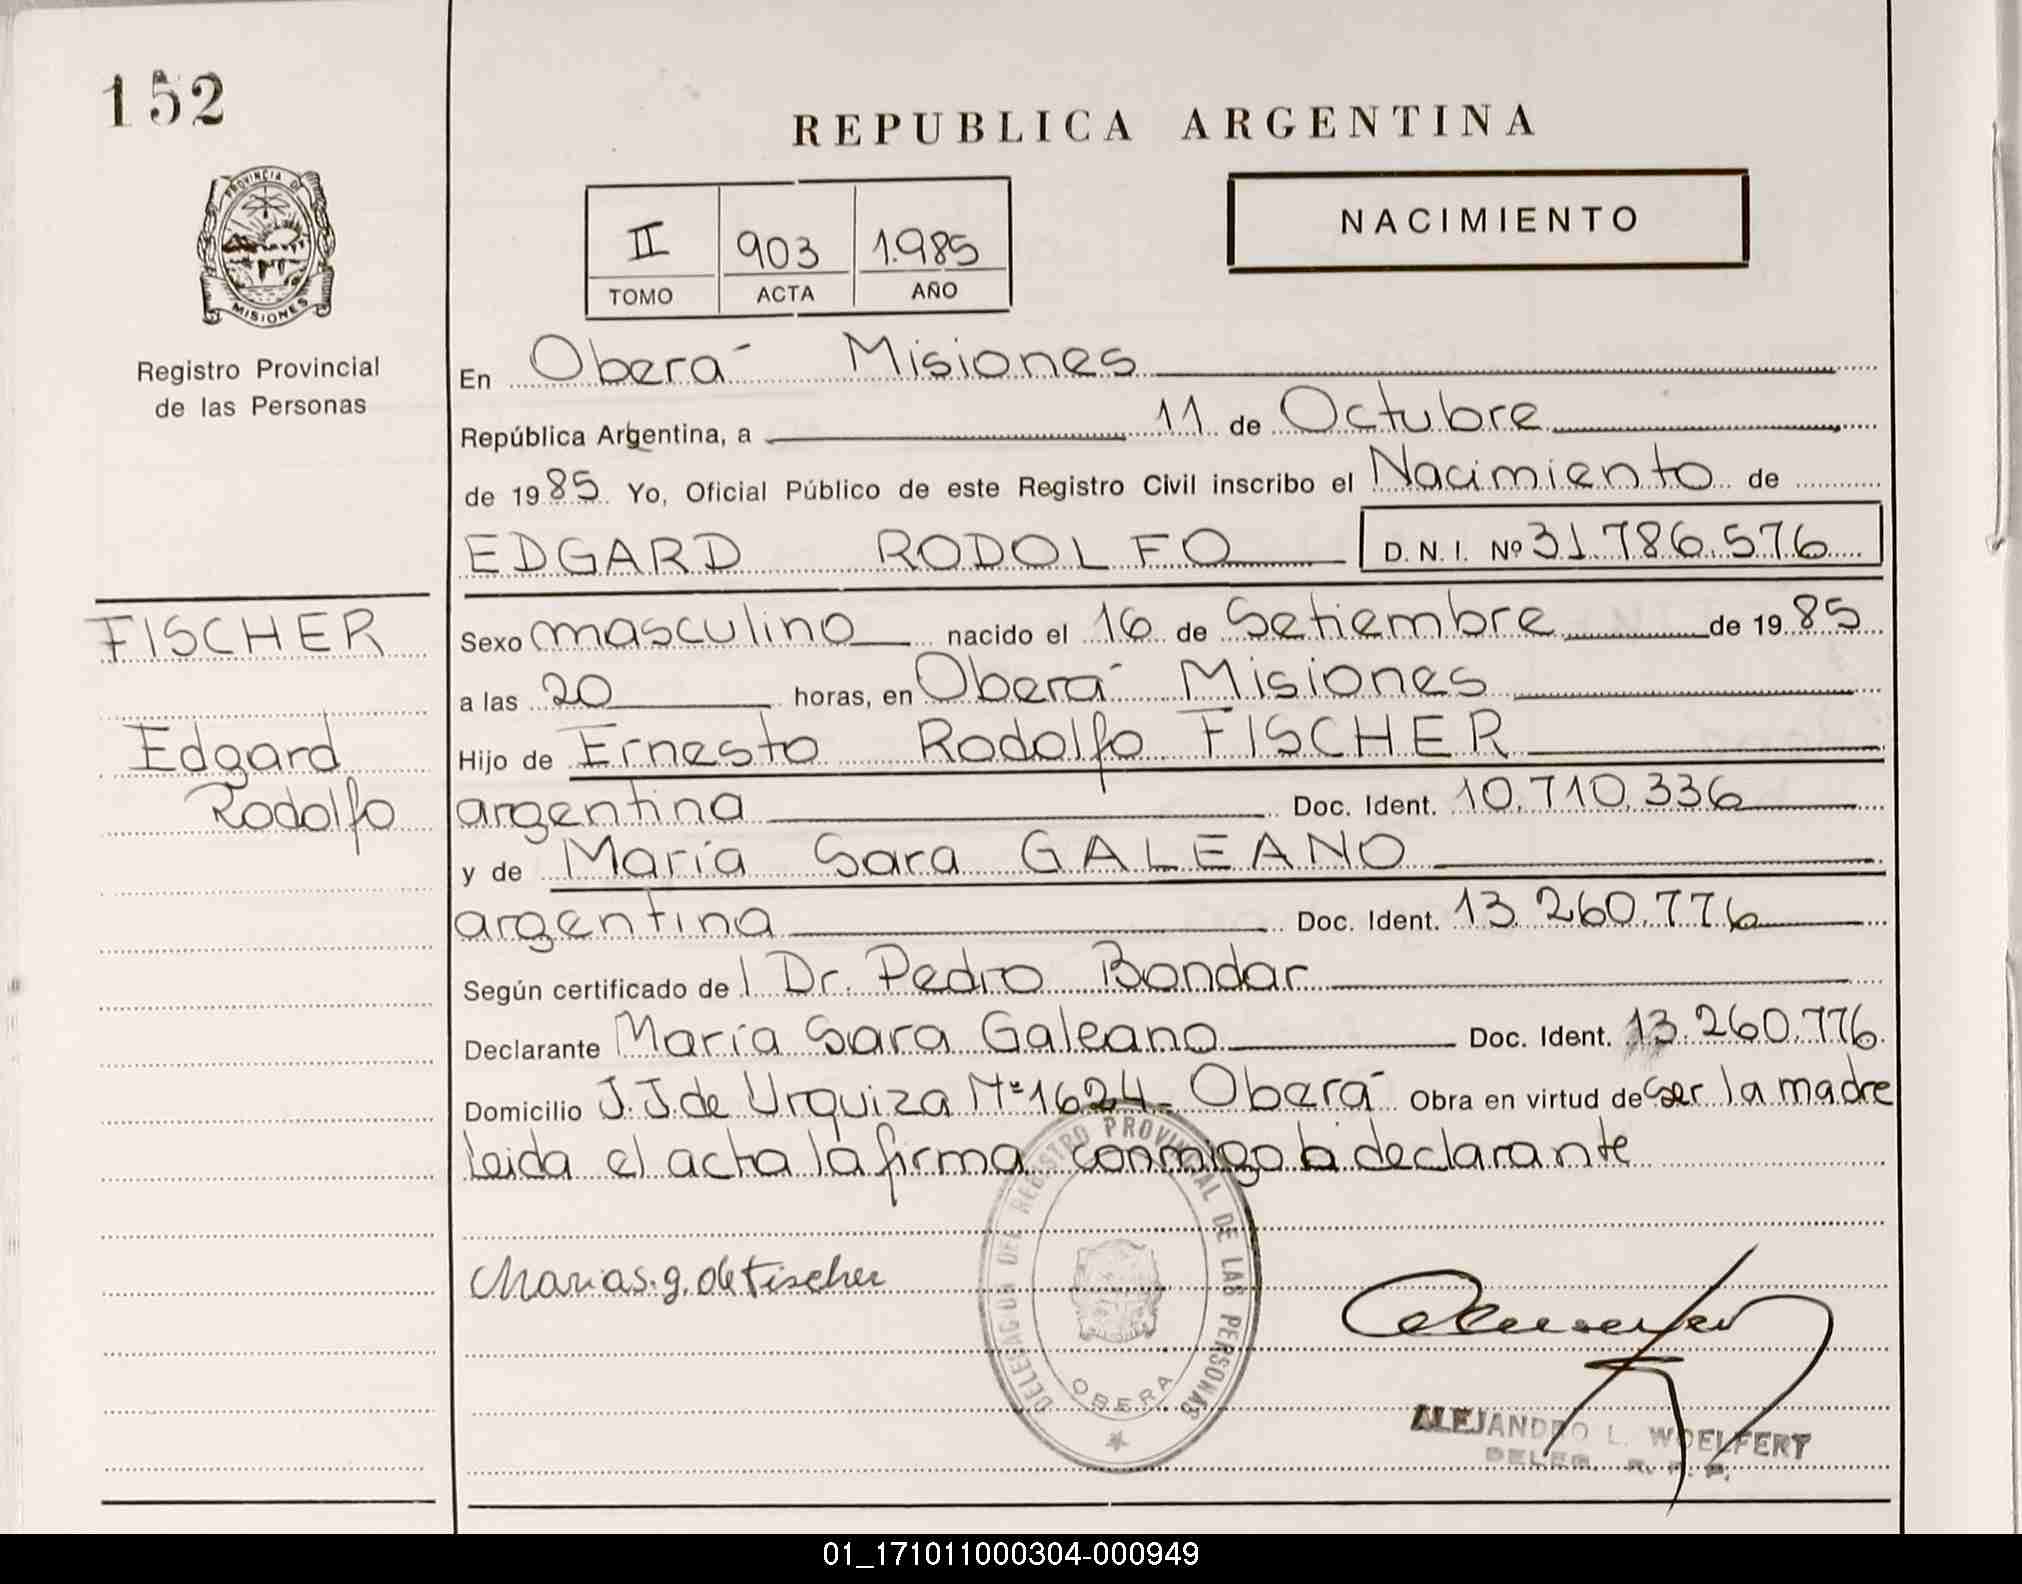 152
REPUBLICA ARGENTINA
PROVINCIA DE
MISIONES
Registro Provincial
de las Personas
II 903 1.985
TOMO ACTA AÑO
NACIMIENTO
En Oberá Misiones
República Argentina, a 11 de Octubre
de 1985 Yo, Oficial Público de este Registro Civil inscribo el Nacimiento de
EDGARD RODOLFO D. N. I. Nº 31.786.576
FISCHER
Edgard
Rodolfo
Sexo masculino nacido el 16 de Setiembre de 1985
a las 20 horas, en Oberá Misiones
Hijo de Ernesto Rodolfo FISCHER
argentina Doc. Ident. 10.710.336
y de María Sara GALEANO
argentina Doc. Ident. 13.260.776
Según certificado de l Dr. Pedro Bondar
Declarante María Sara Galeano Doc. Ident. 13.260.776
Domicilio J.J. de Urquiza Nº 1624 - Oberá Obra en virtud de ser la madre
Leida el acta la firma conmigo la declarante
DELEGACION DEL REGISTRO PROVINCIAL DE LAS PERSONAS
OBERA
Maria s. g. de Fischer
ALEJANDRO L. WOELFERT
DELEG. R. P. P.
01_171011000304-000949